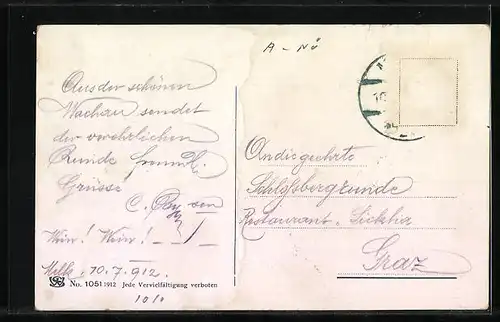 A - NÖ
Aus der schönen
Wachau sendet
der verehrlichen
Runde freundl.
Grüsse
C.
Wein! Wein!
Melk, 10.7.912.
No. 1051 1912 Jede Vervielfältigung verboten
1010
An die geehrte
Schlossbergrunde
Restaurant
Graz